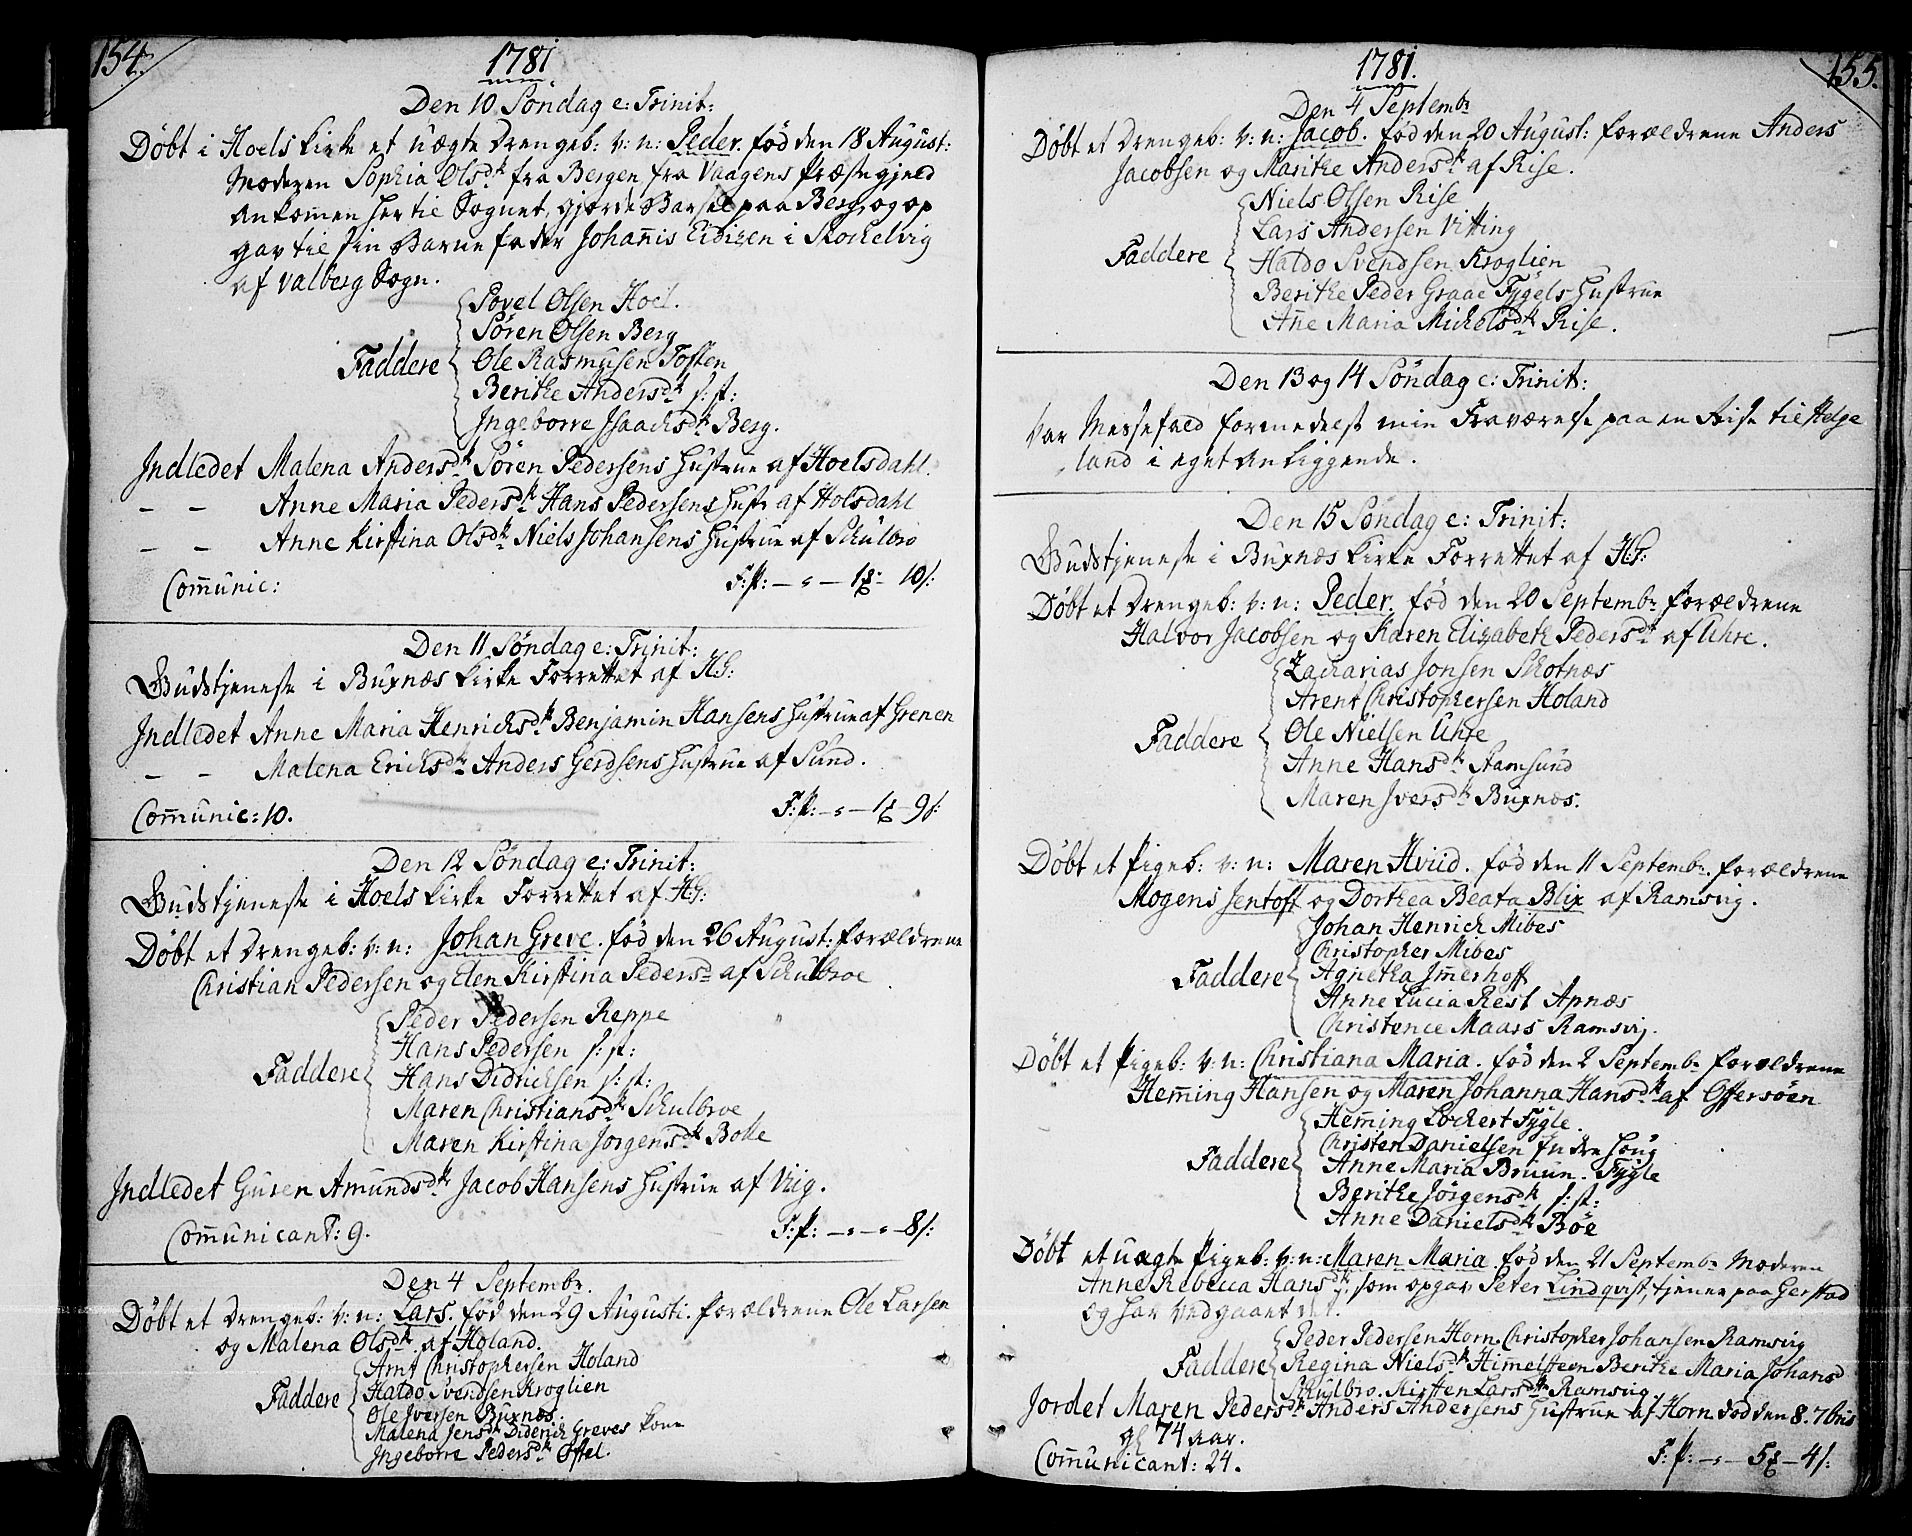 154.
1781
Den 10 Søndag e: Trinit:
Døbt i Hoels Kirke et uægte Drengeb: v: n: Peder. fød den 18 August:
Moderen Sophia Olsdr fra Bergen, fra Vaagens Præstegjeld
ankommen her til Sognet, gjorde Barsel paa Berg, og op
gav til sin Barnefader Johannis Eidizen i Stochelvig
af Valberg Sogn.
Povel Olsen Hoel.
Søren Olsen Berg
Faddere Ole Rasmusen Toften
Berithe Andersdr s: st:
Ingeborre Isaachsdr Berg.
Indledet Malena Andersdr Søren Pedersens Hustrue af Hoelsdahl.
– – Anne Maria Pedersdr Hans Pedersens Hustr af Holsdahl
– – Anne Kirstina Olsdr Niels Johansens Hustrue af Schulbro
Communic: F: P: – " – 1 – 10 s:
Den 11 Søndag e: Trinit:
Gudstjeneste i Buxnæs Kirke Forrettet af H: G:
Indledet Anne Maria Henrichsdr Benjamin Hansens Hustrue af Grenen
– – Malena Erichsdr Anders Gerdsens Hustrue af Sund.
Communic: 10. F: P: – " – 1 – 9 s:
Den 12 Søndag e: Trinit:
Gudstjeneste i Hoels Kirke Forrettet af H: G:
Døbt et Drengeb: v: n: Johan Greve. fød den 26 August: Forældrene
Christian Pedersen og Elen Kirstina Pedersdr af Schulbroe
Peder Pedersen Reppe
Hans Pedersen s: st:
Faddere Hans Didrichsen s: st:
Maren Christiansdr Schulbroe
Maren Kirstina Jørgensdr Bolle
Indledet Guren Amundsdr Jacob Hansens Hustrue af Viig.
Communicant: 9. F: P: – " – " – 8 s:
Den 4 Septembr.
Døbt et Drengeb: v: n: Lars. fød den 29 Augusti. Forældrene Ole Larsen
og Malena Olsdr af Holand.
Arnt Christophersen Holand
Faddere Haldo Svendsen Kroglien
Ole Iversen Buxnæs.
Malena Jensdr Diderich Greves kone
Ingeborre Pedersdr Østel.
155.
1781.
Den 4 Septembr
Døbt et Drengeb: v: n: Jacob. fød den 20 August: Forældrene Anders
Jacobsen og Marithe Andersdr af Rise.
Niels Olsen Rise
Lars Andersen Vitting
Faddere Haldo Svendsen Kroglien
Berithe Peder Graae Fygels Hustrue
Anne Maria Michelsdr Rise.
Den 13 og 14 Søndag e: Trinit:
Var Messefald formedelst min Fraværelse paa en Reise til Helge
land i eget Anliggende.
Den 15 Søndag e: Trinit:
Gudstjeneste i Buxnæs Kirke Forrettet af H: G:
Døbt et Drengeb: v: n: Peder. fød den 20 Septembr Forældrene
Halvor Jacobsen og Karen Elizabeth Pedersdr af Uhre.
Zacharias Jonsen Skotnæs
Arent Christophersen Holand
Faddere Ole Nielsen Uhre
Anne Hansdr Stamsund
Maren Iversdr Buxnæs.
Døbt et Pigeb: v: n: Maren Hviid. fød den 11 Septembr. Forældrene
Mogens Jentoft og Dorthea Beata Blix af Ramsvig.
Johan Henrich Mibes
Christopher Mibes
Faddere Agnetha Immerhoff
Anne Lucia Rest Apnæs
Christence Maars Ramsvig.
Døbt et Pigeb: v: n: Christiana Maria. fød den 2 Septembr Forældrene
Hemming Hansen og Maren Johanna Hansdr af Offersøen
Hemming Lockert Fygle.
Christen Danielsen Indre Houg
Faddere Anne Maria Bruun. Fygle
Berithe Jørgensdr s: st:
Anne Danielsdr Bøe
Døbt et uægte Pigeb: v: n: Maren Maria. fød den 21 Septembr Moderen
Anne Rebecca Hansdr, som opgav Peter Lindqvist, tjener paa Gerstad
og har vedgaaet det.
Peder Pedersen Horn. Christopher Johansen Ramsvig
Faddere Regina Nielsdr Himelsteen Berithe Maria Johansd
Schulbro. Kirsten Larsdr Ramsvig.
Jordet Maren Pedersdr Anders Andersens Hustrue af Horn død den 8. 7bris
gl 74 aar.
Communicant: 24. F: P: – " – 5 – 4 s: